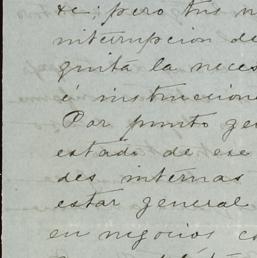 &c; pero tus n
interrupcion de
quita la neces
é instrucione
Por punto gen
estado de ese
des internas
estar general
en negocios co